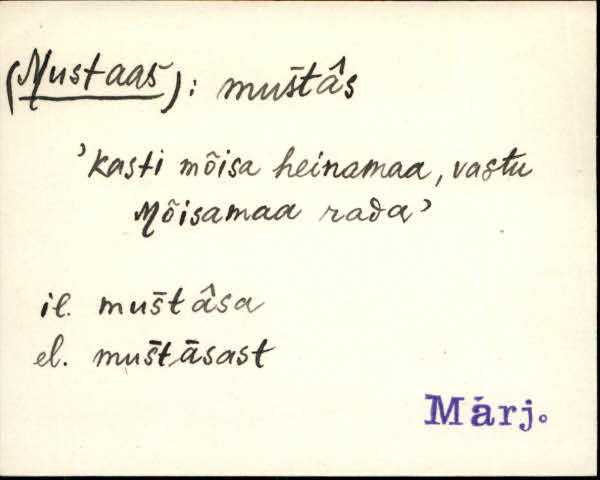 (Mustaas): mus̄tâs
'kasti mõisa heinamaa, vastu
Mõisamaa raδa'
il. mus̄tâsa
el. mus̄tāsast
Märj.